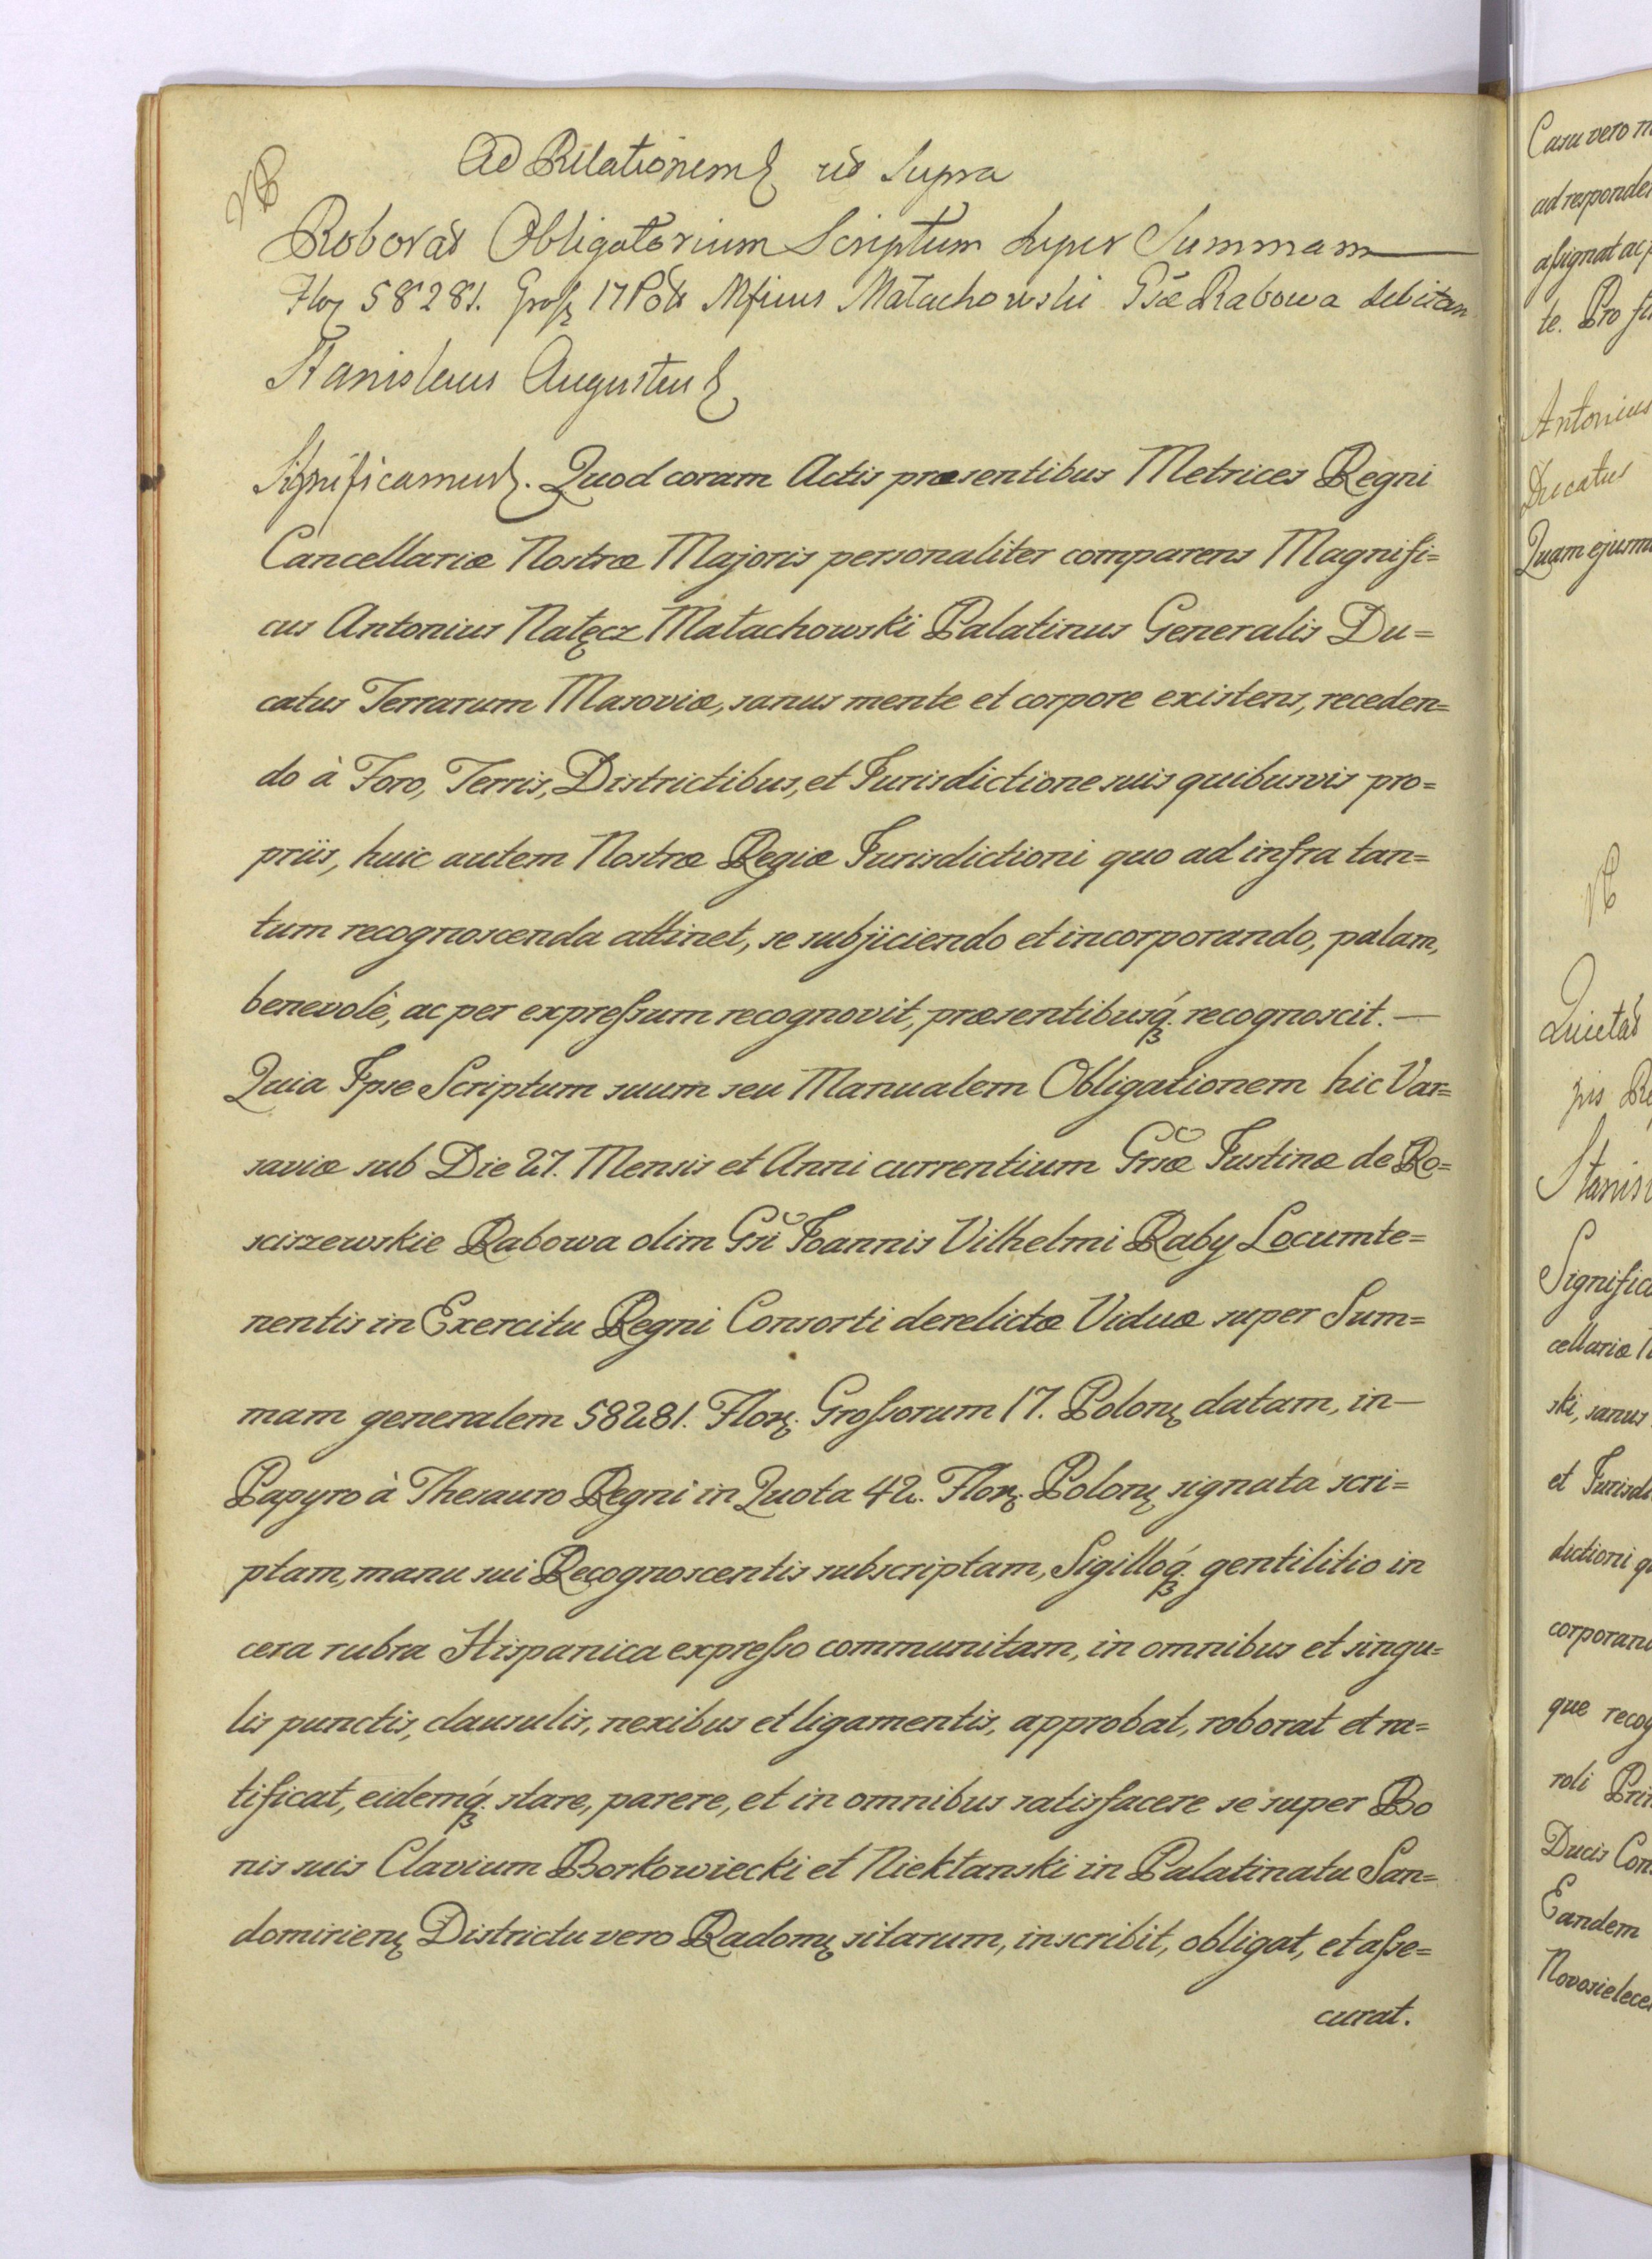 Ad Relationem ut Supra
Roborat Obligatorium Scriptum super Summam
Flor 58281. Gross 17 Pol Mficus Małachowski Gsæ Rabowa debitam
Stanislaus Augustus
Significamus. Quod coram Actis præsentibus Metrices Regni
Cancellariæ Nostræ Majoris personaliter comparens Magnifi=
cus Antonius Nałęcz Małachowski Palatinus Generalis Du=
catus Terrarum Masoviæ, sanus mente et corpore existens, receden=
do à Foro, Terris, Districtibus, et Jurisdictione suis quibusvis pro=
priis, huic autem Nostræ Regiæ Jurisdictioni quo ad infra tan=
tum recognoscenda attinet, se subjiciendo et incorporando, palam,
benevolè, ac per expreſsum recognovit, præsentibusq́. recognoscit. —
Quia Ipse Scriptum suum seu Manualem Obligationem hic Var=
saviæ sub Die 27. Mensis et Anni currentium Gsæ Justinæ de Ro=
sciszewskie Rabowa olim Gsi Joannis Vilhelmi Raby Locumte=
nentis in Exercitu Regni Consorti derelictæ Viduæ super Sum=
mam generalem 58281. Flor. Groſsorum 17. Polon datam, in—
Papyro à Thesauro Regni in Quota 42. Flor. Polon signata scri=
ptam, manu sui Recognoscentis subscriptam, Sigilloq́. gentilitio in
cera rubra Hispanica expreſso communitam, in omnibus et singu=
lis punctis, clausulis, nexibus et ligamentis, approbat, roborat et ra=
tificat, eidemq́. stare, parere, et in omnibus satisfacere se super Bo
nis suis Clavium Borkowiecki et Niekłanski in Palatinatu San=
domirien Districtu vero Radom sitarum, inscribit, obligat, et aſse=
curat.
Casu vero
ad responde
aſsignat ac
te. Pro
Antonius
Ducatus
Quam ejusm
Quietat
Stanis
Signific
cellariæ
ski, sanus
et Jurisd
dictioni q
corporan
que recog
roli Pri
Ducis Con
Eandem
Novosielec